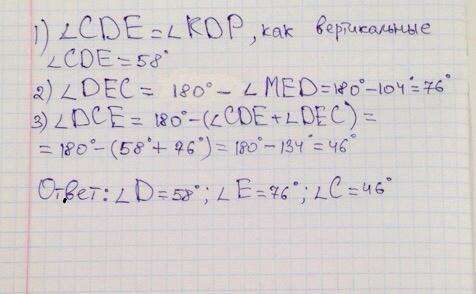 1) ∠CDE = ∠KDP, как вертикальные
∠CDE = 58°
2) ∠DEC = 180° - ∠MED = 180° - 104° = 76°
3) ∠DCE = 180° - (∠CDE + ∠DEC) =
= 180° - (58° + 76°) = 180° - 134° = 46°
Ответ: ∠D = 58°; ∠E = 76°; ∠C = 46°